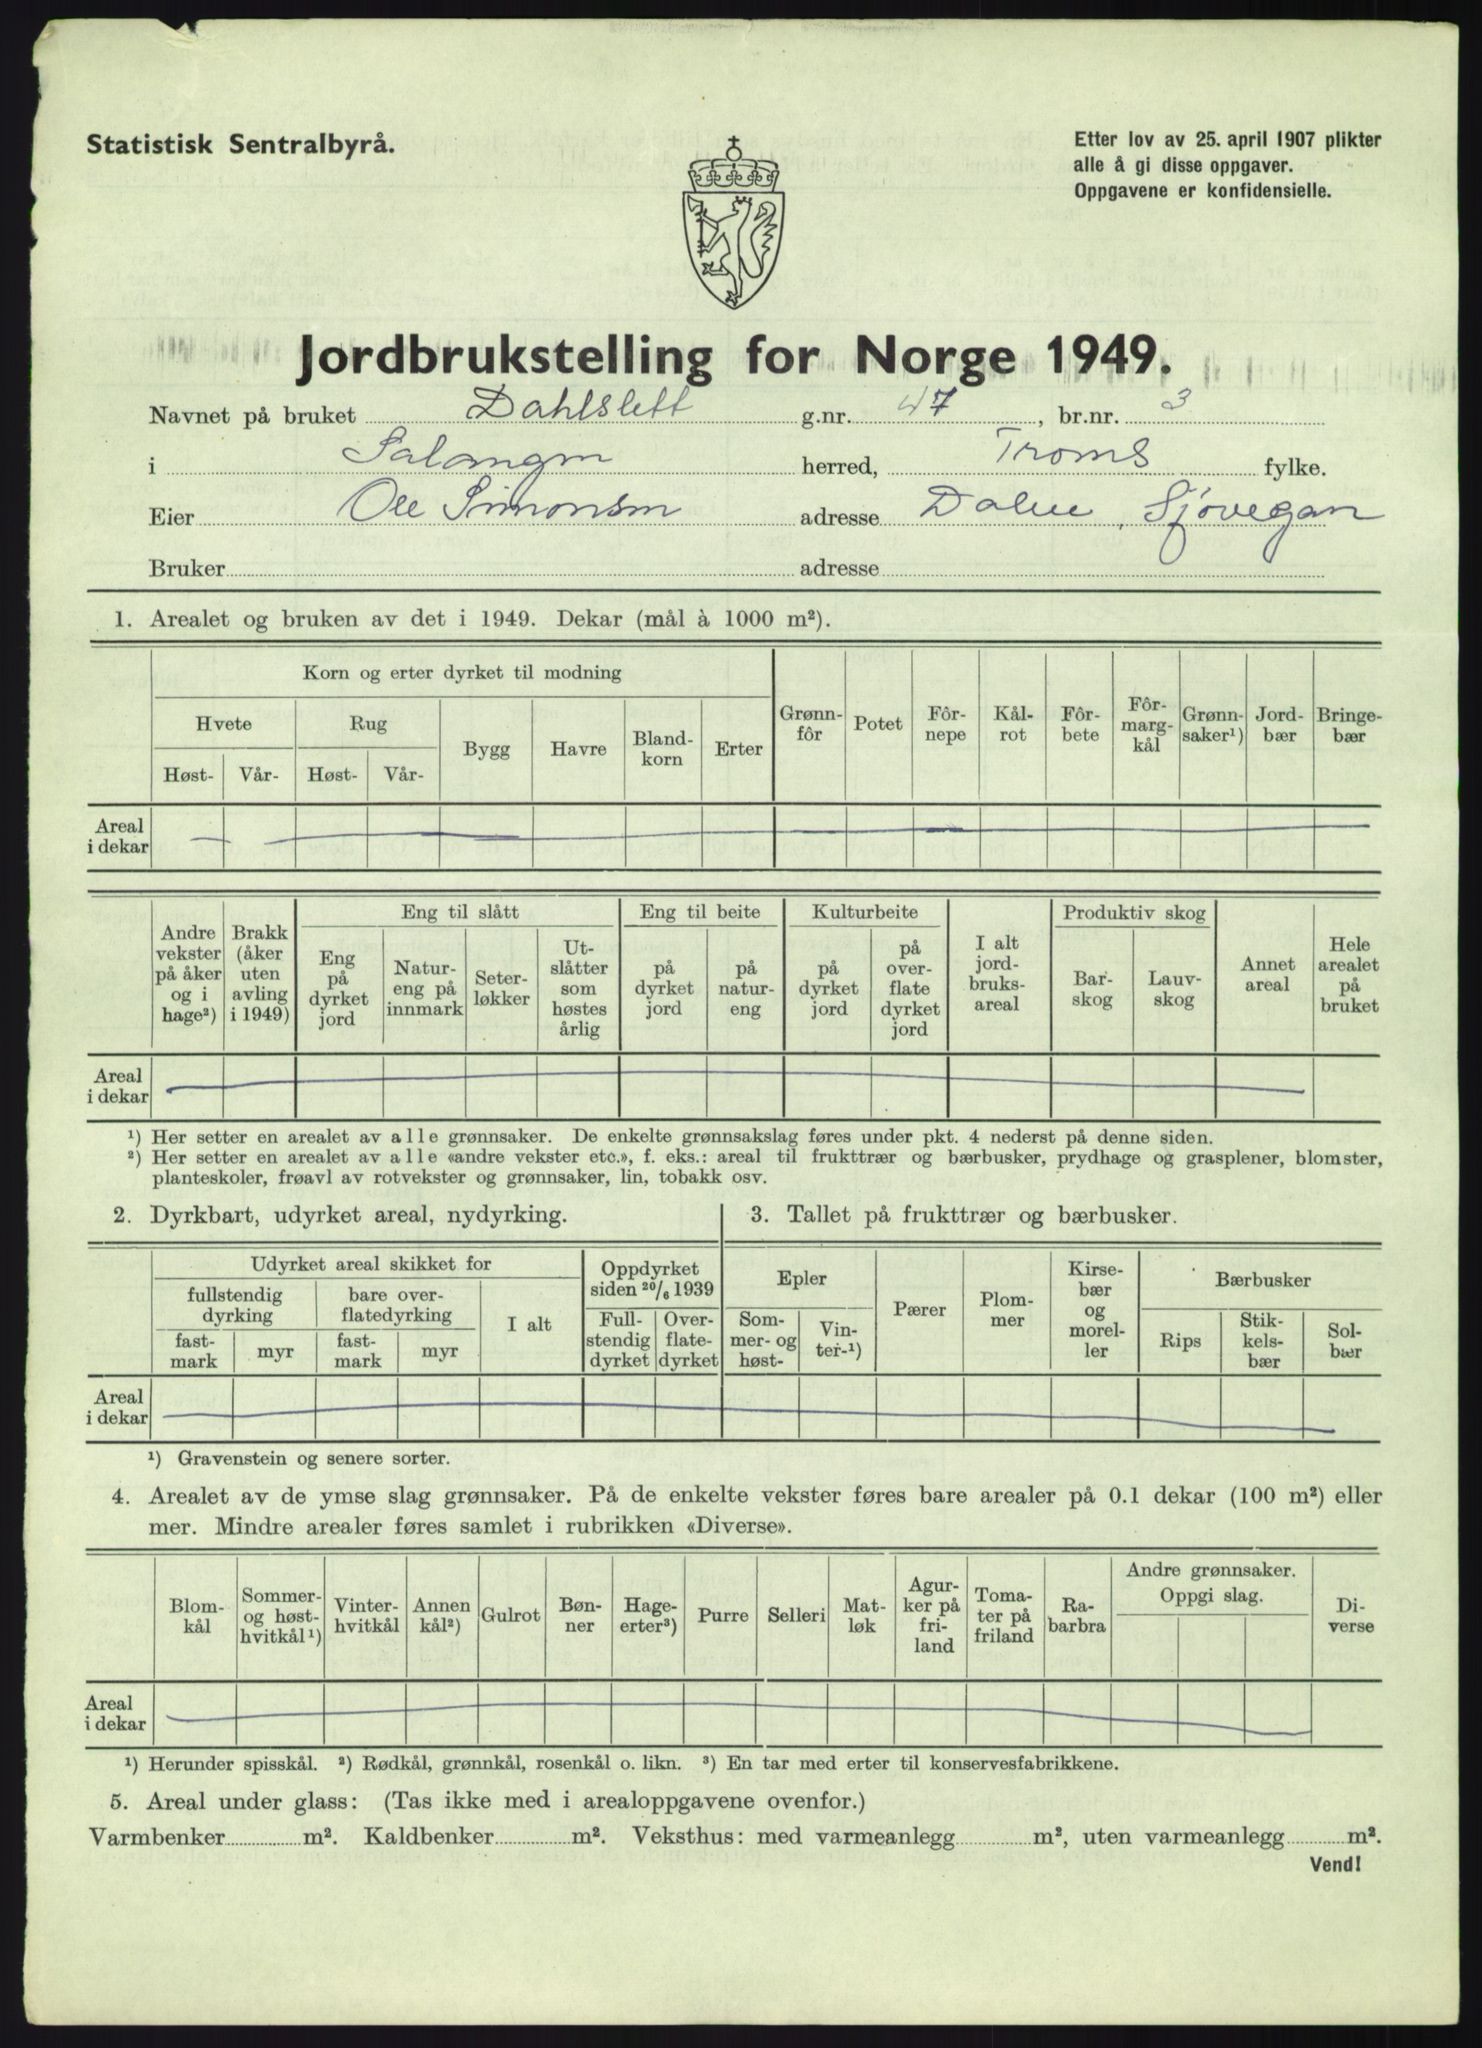 Statistisk Sentralbyrå.
Etter lov av 25. april 1907 plikter
alle å gi disse oppgaver.
Oppgavene er konfidensielle.
Jordbrukstelling for Norge 1949.
Navnet på bruket Dahlslett g.nr. 47, br.nr. 3
i Salangen herred, Troms fylke.
Eier Ole Simonsen adresse Sjøvegan
Bruker adresse
1. Arealet og bruken av det i 1949. Dekar (mål à 1000 m²).
Korn og erter dyrket til modning
Hvete Rug
Høst- Vår- Høst- Vår-
Bygg Havre Bland-
korn Erter
Grønn-
fôr Potet Fôr-
nepe Kål-
rot Fôr-
bete Fôr-
marg-
kål Grønn-
saker¹) Jord-
bær Bringe-
bær
Areal
i dekar
Andre
vekster
på åker
og i
hage²)
Brakk
(åker
uten
avling
i 1949)
Eng til slått
Eng
på
dyrket
jord
Natur-
eng på
innmark
Seter-
løkker
Ut-
slåtter
som
høstes
årlig
Eng til beite
på
dyrket
jord
på
natur-
eng
Kulturbeite
på
dyrket
jord
på
over-
flate
dyrket
jord
I alt
jord-
bruks-
areal
Produktiv skog
Bar-
skog
Lauv-
skog
Annet
areal
Hele
arealet
på
bruket
Areal
i dekar
¹) Her setter en arealet av alle grønnsaker. De enkelte grønnsakslag føres under pkt. 4 nederst på denne siden.
²) Her setter en arealet av alle «andre vekster etc.», f. eks.: areal til frukttrær og bærbusker, prydhage og grasplener, blomster,
planteskoler, frøavl av rotvekster og grønnsaker, lin, tobakk osv.
2. Dyrkbart, udyrket areal, nydyrking.
Udyrket areal skikket for
fullstendig
dyrking
bare over-
flatedyrking
fast-
mark
myr
fast-
mark
myr
I alt
Oppdyrket
siden 20/6 1939
Full-
stendig
dyrket
Over-
flate-
dyrket
3. Tallet på frukttrær og bærbusker.
Epler
Som-
mer- og
høst-
Vin-
ter-¹)
Pærer
Plom-
mer
Kirse-
bær
og
morel-
ler
Bærbusker
Rips
Stik-
kels-
bær
Sol-
bær
Areal
i dekar
¹) Gravenstein og senere sorter.
4. Arealet av de ymse slag grønnsaker. På de enkelte vekster føres bare arealer på 0.1 dekar (100 m²) eller
mer. Mindre arealer føres samlet i rubrikken «Diverse».
Blom-
kål
Sommer-
og høst-
hvitkål¹)
Vinter-
hvitkål
Annen
kål²)
Gulrot
Bøn-
ner
Hage-
erter³)
Purre
Selleri
Mat-
løk
Agur-
ker på
fri-
land
Toma-
ter på
friland
Ra-
barbra
Andre grønnsaker.
Oppgi slag.
Di-
verse
Areal
i dekar
¹) Herunder spisskål. ²) Rødkål, grønnkål, rosenkål o. likn. ³) En tar med erter til konservesfabrikkene.
5. Areal under glass: (Tas ikke med i arealoppgavene ovenfor.)
Varmbenker m². Kaldbenker m². Veksthus: med varmeanlegg m², uten varmeanlegg m².
Vend!